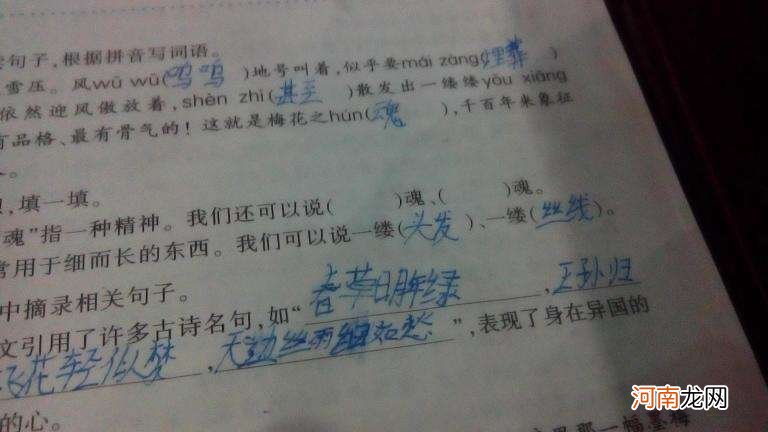 句子,根据拼音写词语。
雪压。风wū wū(呜呜)地号叫着,似乎要mái zàng(埋葬)
依然迎风傲放着,shèn zhì(甚至)散发出一缕缕yōu xiāng
有品格、最有骨气的!这就是梅花之hún(魂),千百年来象征
。
,填一填。
魂”指一种精神。我们还可以说( )魂、( )魂。
常用于细而长的东西。我们可以说一缕(头发)、一缕(丝线)。
中摘录相关句子。
文引用了许多古诗名句,如“春草明年绿,王孙归
飞花轻似梦,无边丝雨细如愁”,表现了身在异国的
的心。
那一幅墨梅
河南龙网